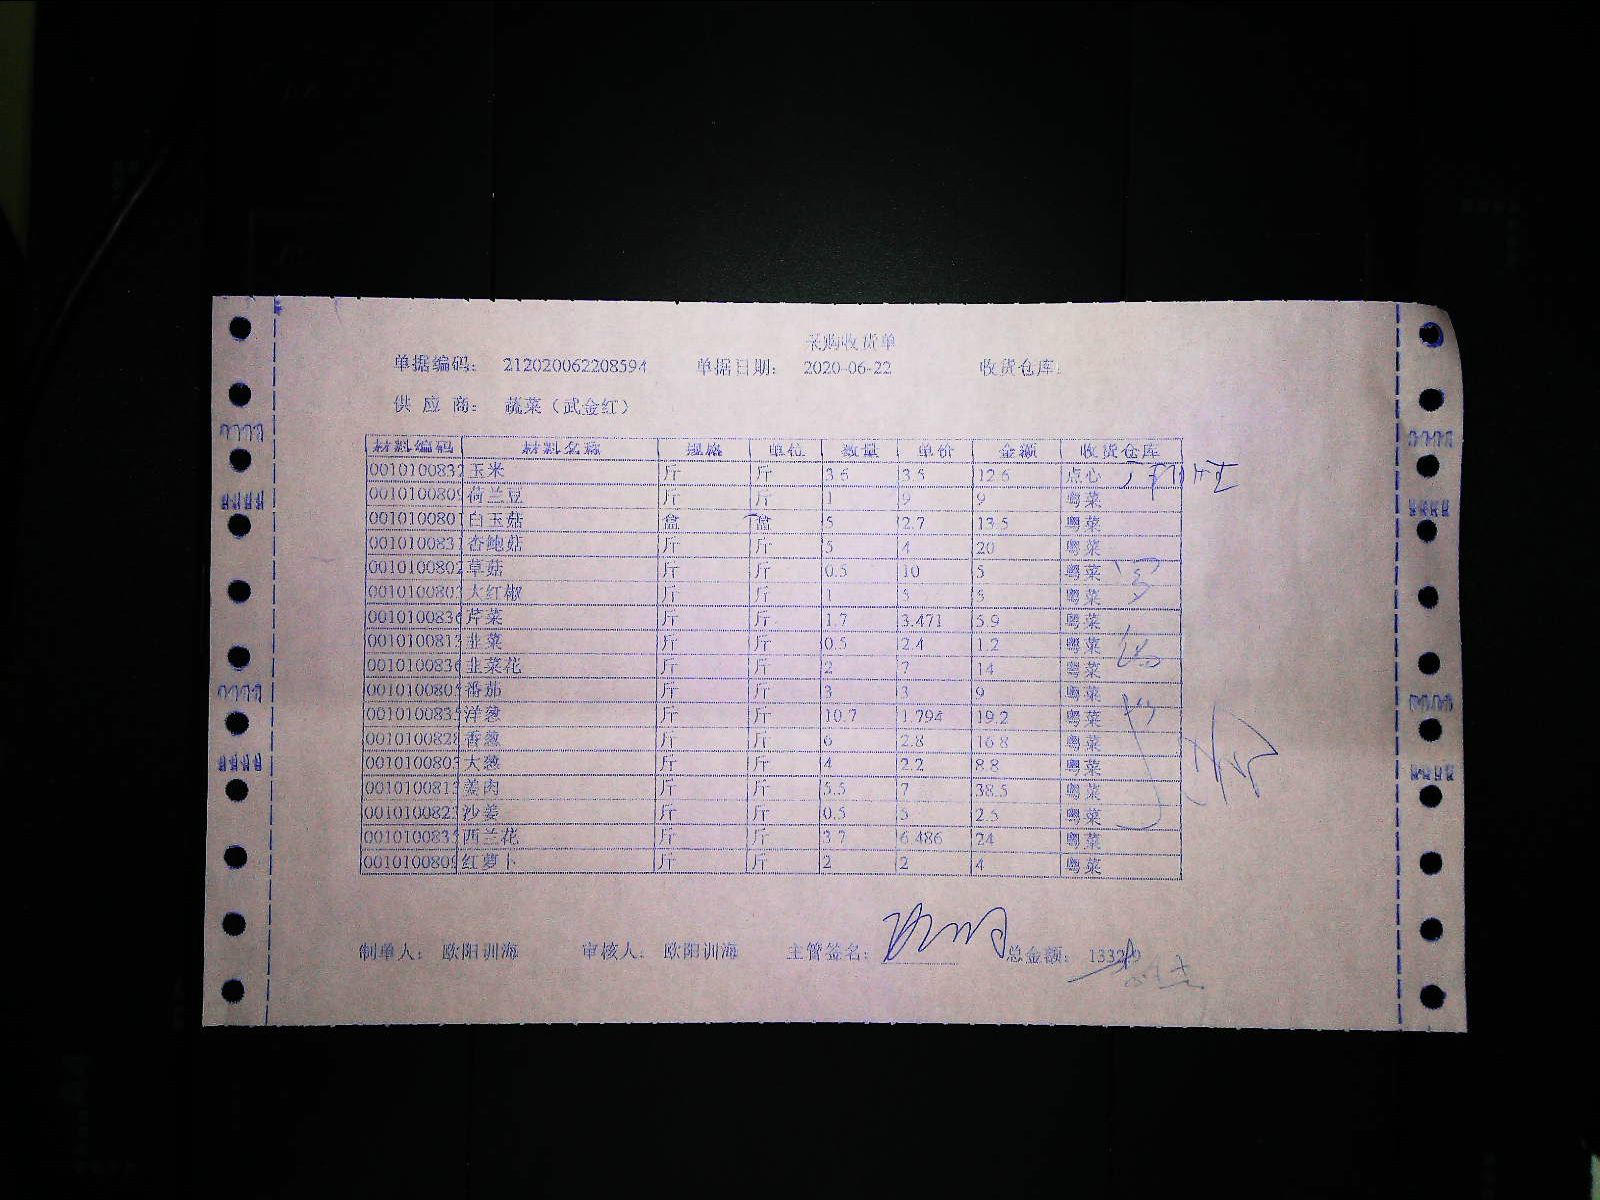 采购收货单
单据编码： 212020062208594 单据日期： 2020-06-22 收货仓库：
供 应 商： 蔬菜（武金红）
材料编码 材料名称 规格 单位 数量 单价 金额 收货仓库
0010100832 玉米 斤 斤 3.6 3.5 12.6 点心
0010100809 荷兰豆 斤 斤 1 9 9 粤菜
0010100801 白玉菇 盒 盒 5 2.7 13.5 粤菜
0010100831 杏鲍菇 斤 斤 5 4 20 粤菜
0010100802 草菇 斤 斤 0.5 10 5 粤菜
0010100803 大红椒 斤 斤 1 5 5 粤菜
0010100836 芹菜 斤 斤 1.7 3.471 5.9 粤菜
0010100812 韭菜 斤 斤 0.5 2.4 1.2 粤菜
0010100836 韭菜花 斤 斤 2 7 14 粤菜
0010100805 番茄 斤 斤 3 3 9 粤菜
0010100835 洋葱 斤 斤 10.7 1.794 19.2 粤菜
0010100828 香葱 斤 斤 6 2.8 16.8 粤菜
0010100803 大葱 斤 斤 4 2.2 8.8 粤菜
0010100813 姜肉 斤 斤 5.5 7 38.5 粤菜
0010100823 沙姜 斤 斤 0.5 5 2.5 粤菜
0010100835 西兰花 斤 斤 3.7 6.486 24 粤菜
0010100809 红萝卜 斤 斤 2 2 4 粤菜
制单人： 欧阳训海 审核人： 欧阳训海 主管签名： 总金额：